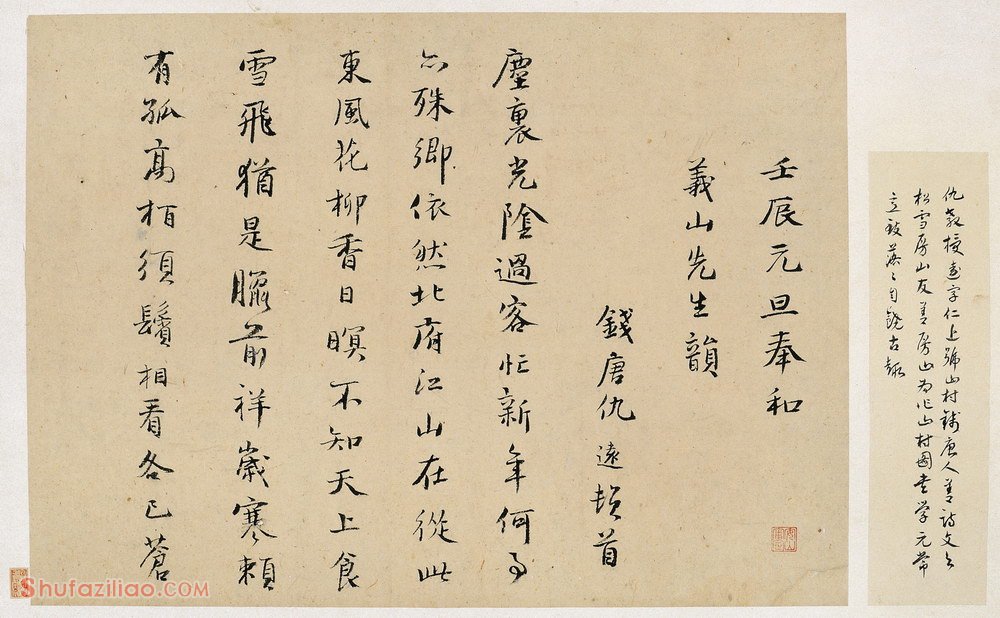 仇教授遠字仁上號山村錢唐人善詩文與
松雪房山友善房山為作山村圖書學元常
立致落々自饒古趣
壬辰元旦奉和
義山先生韻
錢唐仇遠頓首
塵裏光陰過客忙新年何事
亦殊鄉依然北府江山在從此
東風花柳香日暝不知天上食
雪飛猶是臘前祥歲寒賴
有孤高栢須鬢相看各已蒼
Shufaziliao.COM